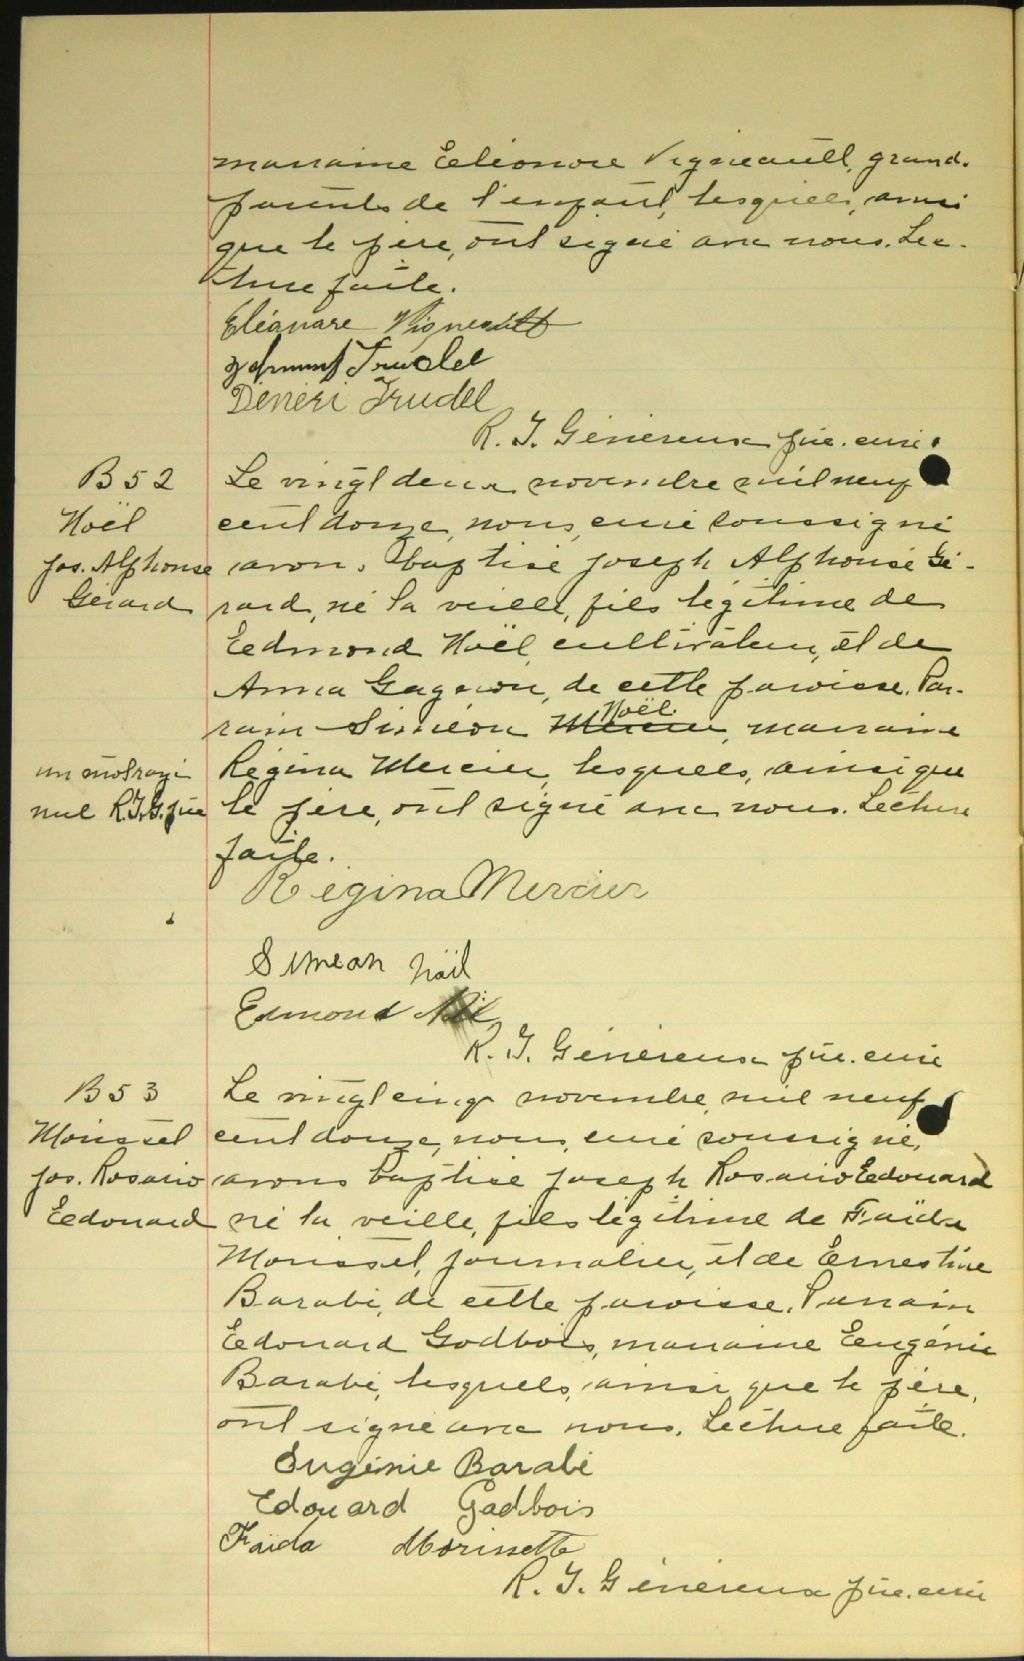 marraine Eléonore Vigneault, grand-
parents de l'enfant, lesquels, ainsi
que le père, ont signé avec nous. Lec-
ture faite.
Eléonare Vigneault
Trudel
Déneri Trudel
R. T. Généreux ptre. curé.
B 52
Noël
Jos. Alphonse
Gérard
Le vingt deux novembre mil neuf
cent douze, nous, curé soussigné
avons baptisé Joseph Alphonse Gé-
rard, né la veille, fils légitime de
Edmond Noël, cultivateur, et de
Anna Gagnon, de cette paroisse. Par-
rain Siméon Mercier Noël, marraine
un mot rayé
nul R.T.G. ptre
Régina Mercier, lesquels, ainsi que
le père, ont signé avec nous. Lecture
faite.
Régina Mercier
Simean Noël
Edmond Noël
R. T. Généreux ptre. curé
B 53
Morisset
Jos. Rosario
Edouard
Le vingt cinq novembre, mil neuf
cent douze, nous, curé soussigné,
avons baptisé Joseph Rosario Edouard
né la veille, fils légitime de Faïda
Morisset, journalier, et de Ernestine
Barabé, de cette paroisse. Parrain
Edouard Godbois, marraine Eugénie
Barabé, lesquels, ainsi que le père,
ont signé avec nous. Lecture faite.
Eugénie Barabé
Edouard Gadbois
Faïda Morissette
R. T. Généreux ptre. curé